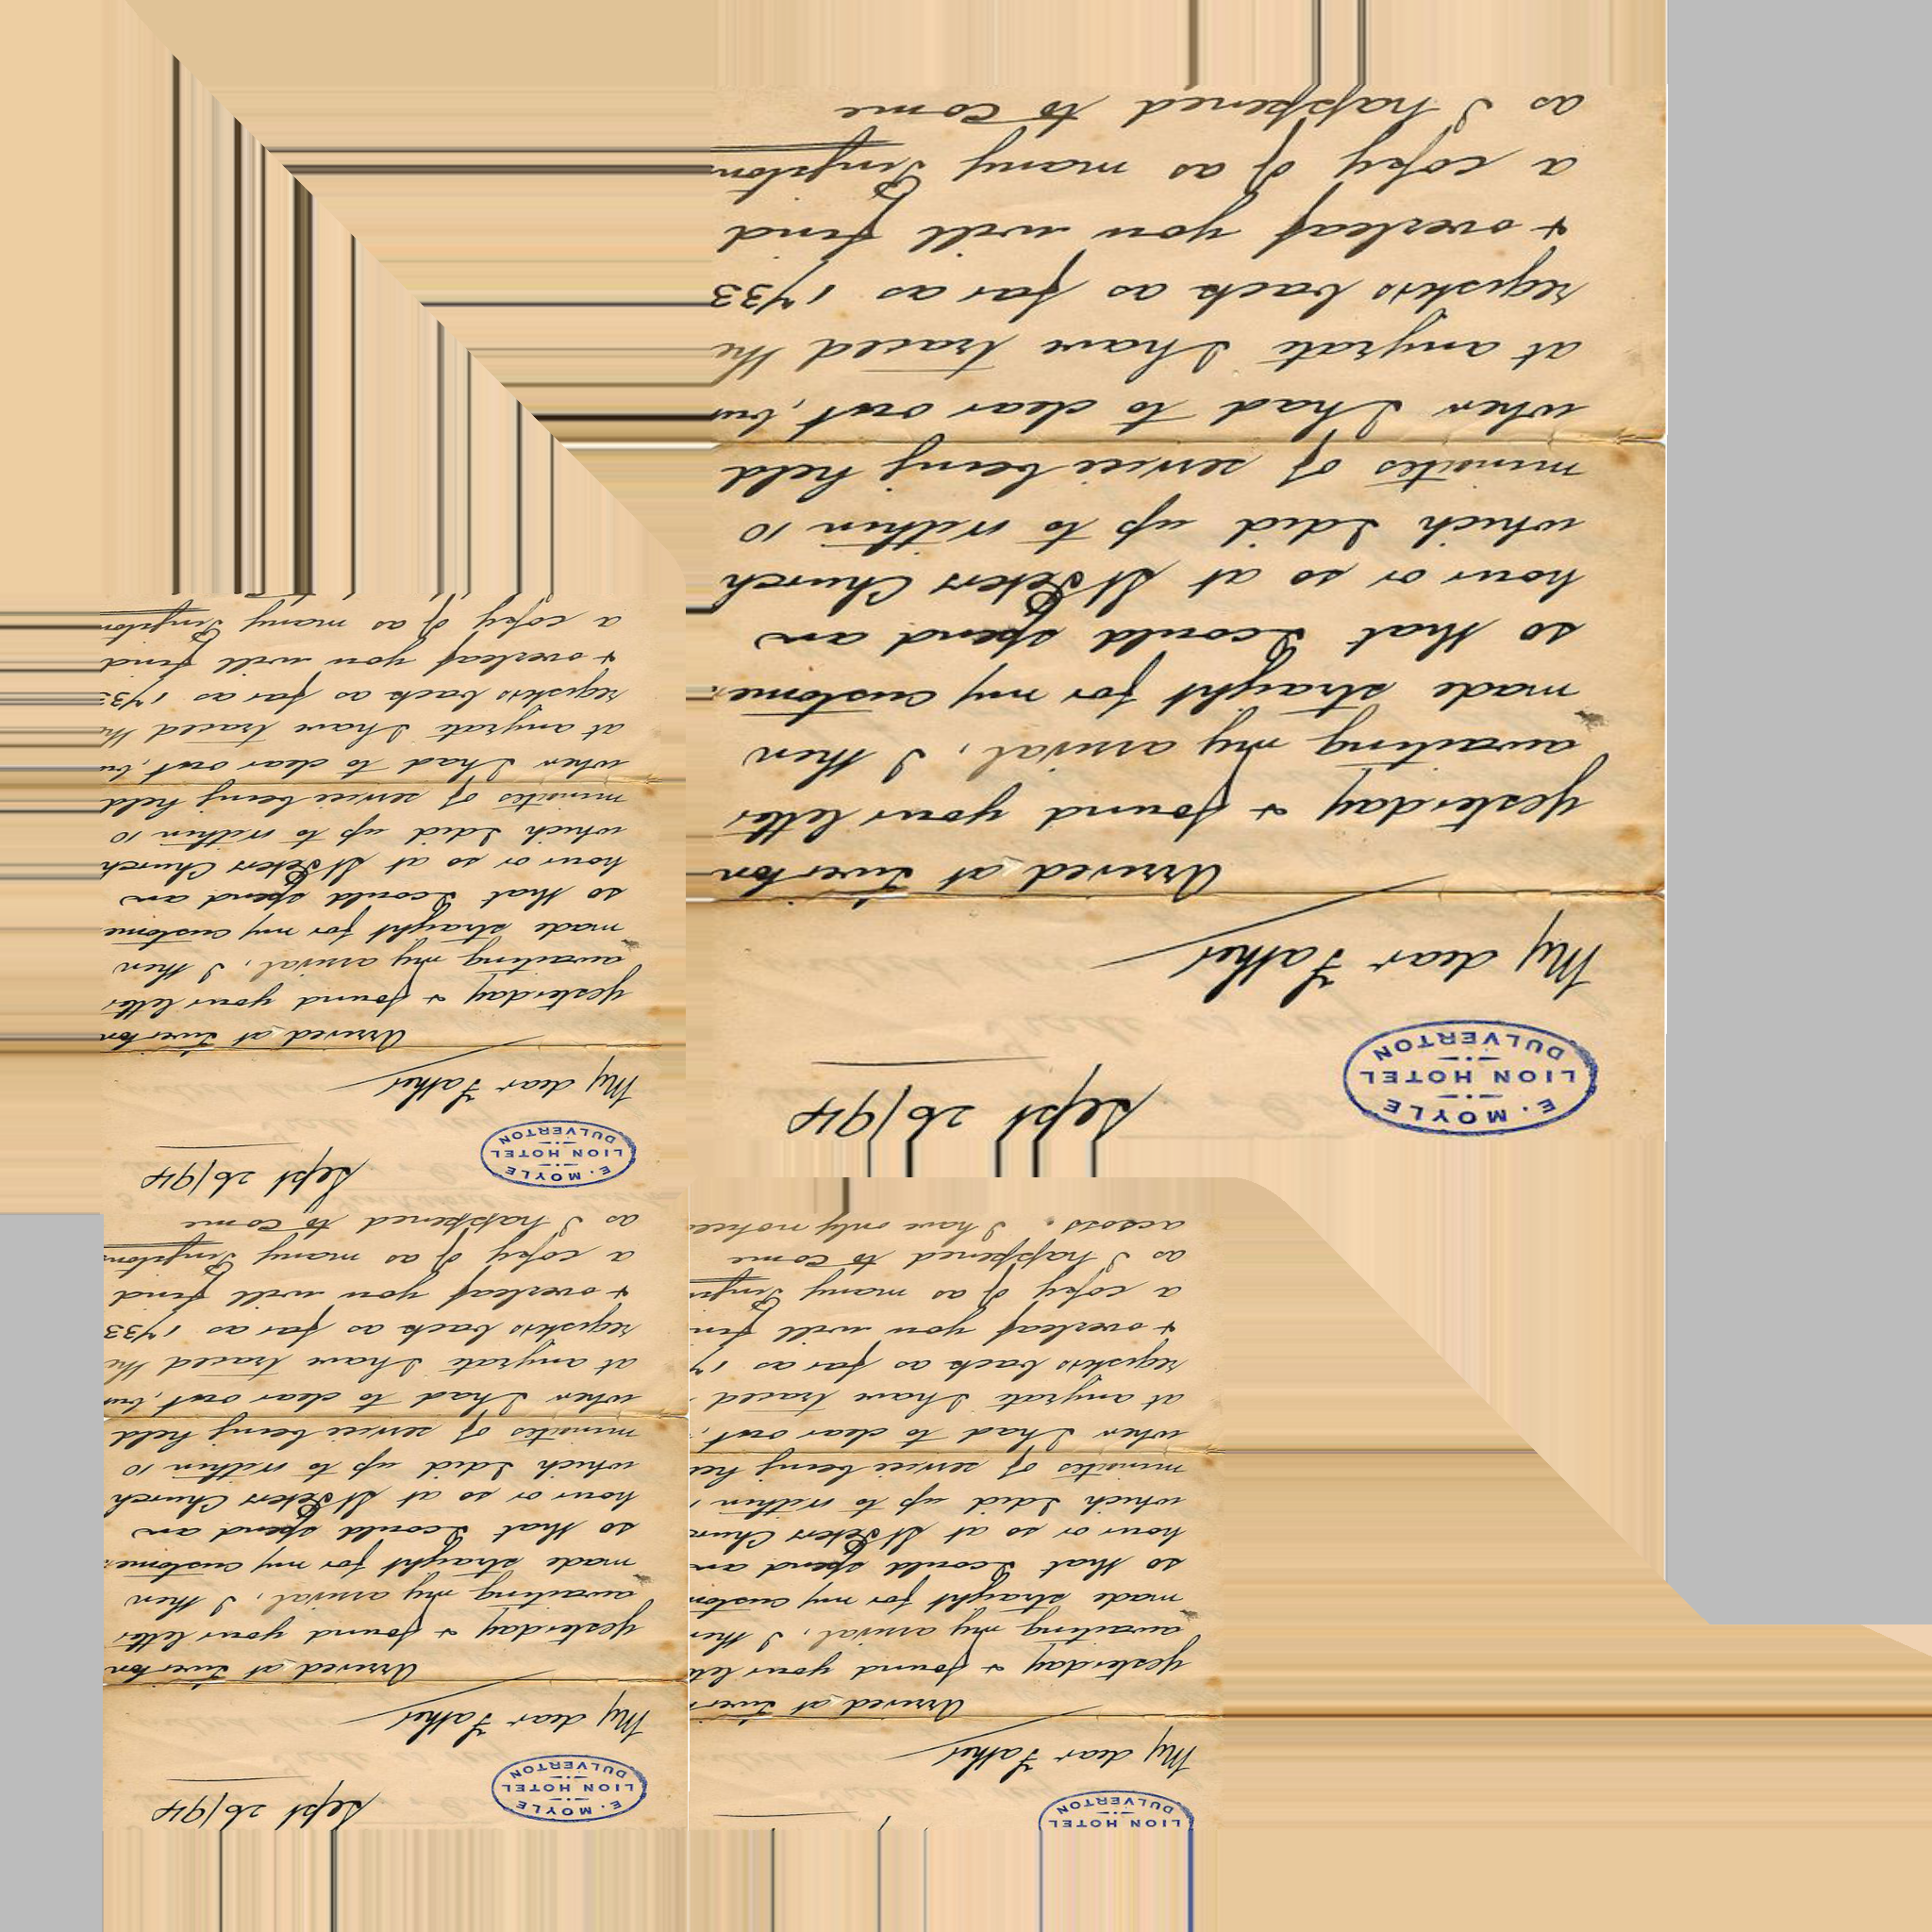 E. MOYLE
LION HOTEL
DULVERTON
Sept 26/94
My dear Father
Arrived at Tiverton
yesterday & found your letter
awaiting my arrival, I then
made straight for my custome
so that I could spend an
hour or so at St Peters Church
which I did up to within 10
minutes of service being held
when I had to clear out, but
at anyrate I have traced the
registers back as far as 1733
& overleaf you will find
a copy of as many
as I happened to come
E. MOYLE
LION HOTEL
DULVERTON
Sept 26/94
My dear Father
Arrived at Tiverton
yesterday & found your letter
awaiting my arrival, I then
made straight for my custome
so that I could spend an
hour or so at St Peters Church
which I did up to within 10
minutes of service being held
when I had to clear out, but
at anyrate I have traced the
registers back as far as 173
& overleaf you will find
a copy of as many
E. MOYLE
LION HOTEL
DULVERTON
Sept 26/94
My dear Father
Arrived at Tiverton
yesterday & found your letter
awaiting my arrival, I then
made straight for my custome
so that I could spend an
hour or so at St Peters Church
which I did up to within 10
minutes of service being held
when I had to clear out, but
at anyrate I have traced the
registers back as far as 1733
& overleaf you will find
a copy of as many
as I happened to come
LION HOTEL
DULVERTON
My dear Father
Arrived at Tiver
yesterday & found your let
awaiting my arrival, I then
made straight for my custom
so that I could spend an
hour or so at St Peters Churc
which I did up to within
minutes of service being hel
when I had to clear out,
at anyrate I have traced
registers back as far as 17
& overleaf you will fin
a copy of as many
as I happened to come
across. I have only notice